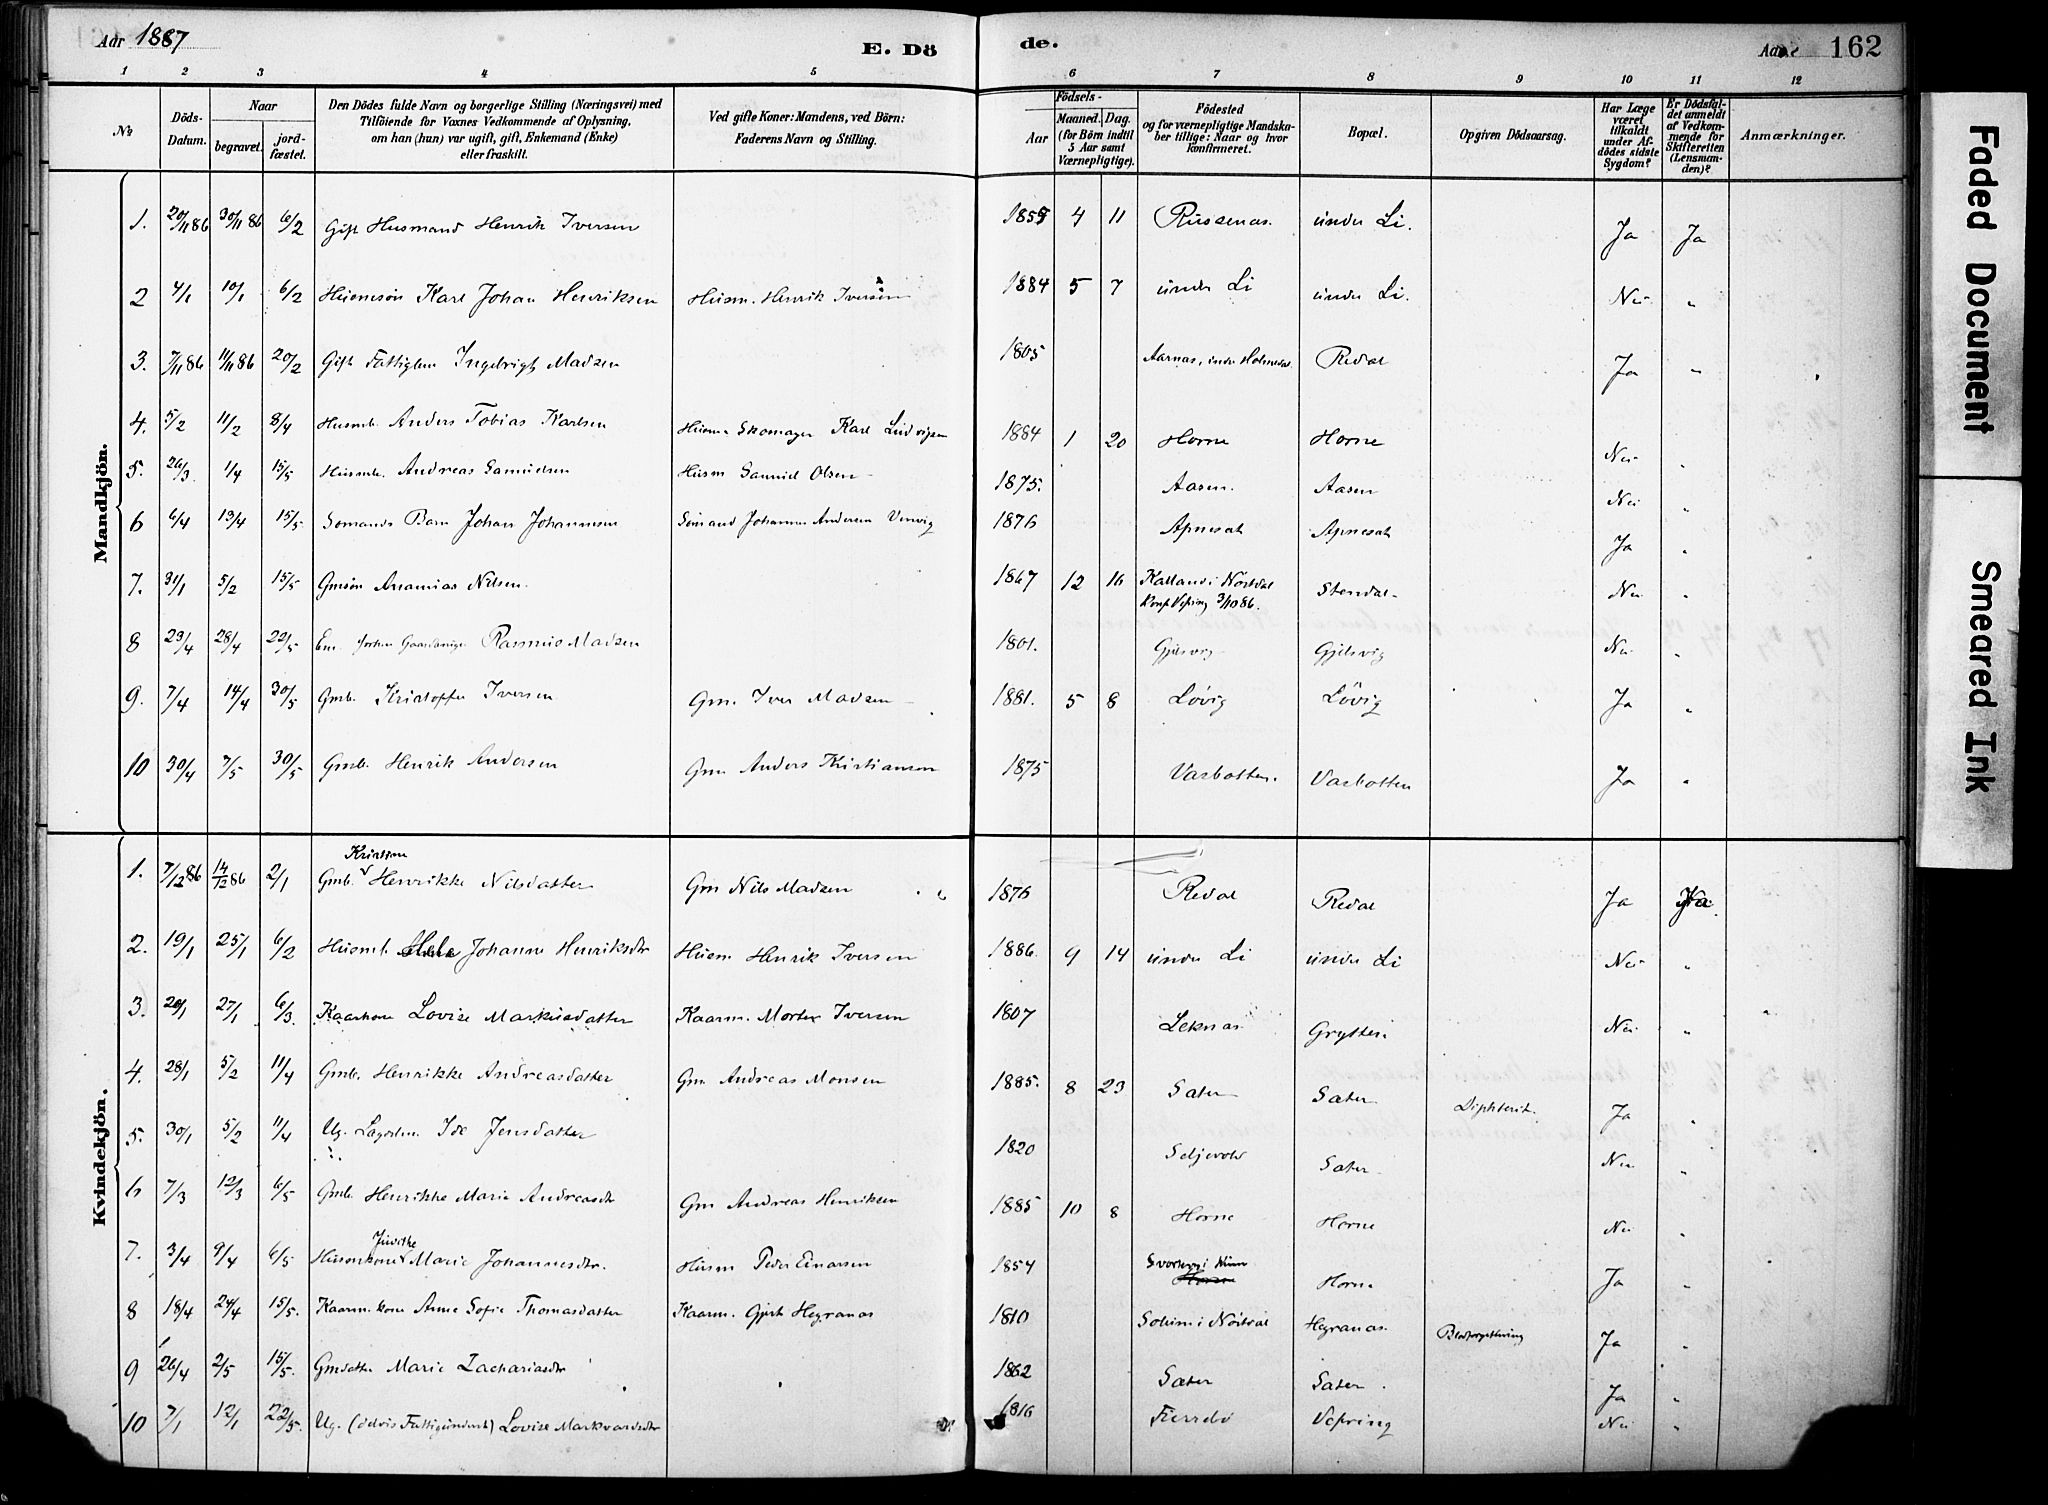 Aar 1887
E. Dö
de.
Aar 162
1 2 3 4 5 6 7 8 9 10 11 12
No
Döds-
Datum.
Naar
begravet.
jord-
fæstet.
Den Dödes fulde Navn og borgerlige Stilling (Næringsvei) med
Tilföiende for Voxnes Vedkommende af Oplysning,
om han (hun) var ugift, gift, Enkemand (Enke)
eller fraskilt.
Ved gifte Koner: Mandens, ved Börn:
Faderens Navn og Stilling.
Födsels-
Aar
Maaned.
Dag.
(for Börn indtil
5 Aar samt
Værnepligtige).
Födested
og for værnepligtige Mandska-
ber tillige: Naar og hvor
konfirmeret.
Bopæl.
Opgiven Dödsaarsag.
Har Læge
været
tilkaldt
under Af-
dödes sidste
Sygdom?
Er Dödsfal-
det anmeldt
af Vedkom-
mende for
Skifteretten
(Lensman-
den)?
Anmærkninger.
Mandkjön.
1. 20/11 86 30/11 86 6/2 Gift Husmand Henrik Iversen 1855 4 11 Russenas. under Li. Ja Ja
2 4/1 10/1 6/2 Husmsön Karl Johan Henriksen Husm. Henrik Iversen 1884 5 7 under Li under Li. Nei "
3. 7/11 86 11/11 86 20/2 Gift Fattiglem Ingebrigt Madsen 1805 Aarnas, indre Holmedal Redal Ja "
4. 5/2 11/2 8/4 Husmb. Anders Tobias Karlsen Husm Skomager Karl Ludvigsen 1884 1 20 Horne Horne Nei "
5. 26/3 1/4 15/5 Husmb. Andreas Samuelsen Husm Samuel Olsen 1875. Aasen. Aasen Nei "
6 6/4 13/4 15/5 Sömands Barn Johan Johannesen Sömand Johannes Andersen Vervig 1876 Apnesat Apnesat Ja "
7. 31/1 5/2 15/5 Gmsön Ananias Nilsen. 1867 12 16 Kalland i Nöstdal Stendal. Nei "
Konf Vefring 3/10 86.
8 23/4 28/4 22/5 Em. Rasmus Madsen 1801. Gjelsvig Gjelsvig Nei "
9. 7/4 14/4 30/5 Gmb. Kristoffer Iversen Gm. Iver Madsen 1881. 5 8 Lövig Lövig Ja "
10 30/4 7/5 30/5 Gmb. Henrik Andersen Gm. Anders Kristiansen 1875 Vasbotten. Vasbotten Ja "
Kvindekjön.
Kristine
1. 7/12 86 14/12 86 2/1 Gmb. Henrikke Nilsdatter Gm Nils Madsen 1876 Redal Redal Ja Ja
2. 19/1 25/1 6/2 Husmb. Johanne Henriksdtr Husm Henrik Iversen 1886. 9 14 under Li under Li Nei "
3. 20/1 27/1 6/3 Kaarkone Lovise Markusdatter Kaarm. Morten Iversen 1807 Leknas Grytten Nei "
4. 28/1 5/2 11/4 Gmb. Henrikke Andreasdatter Gm Andreas Monsen 1885. 8 23 Sater Sater Diphterit. Ja "
5. 30/1 5/2 11/4 Ug. Lagdslem. Ide Jensdatter 1820 Seljevold Sater Nei "
6 7/3 12/3 6/5 Gmb. Henrikke Marie Andreasdtr Gm Andreas Henriksen 1885 10 8 Horne Horne Nei "
Juditke
7. 3/4 9/4 6/5 Husmkone Marie Johannesdtr. Husm Peder Einarsen 1854 Horne Ja "
8 18/4 24/4 15/5. Kaarm.kone Anne Sofie Thomasdatter Kaarm. Gjert Hegranas 1810 Solheim i Nöstdal Hegranas. Blodforgiftning Ja "
9 26/4 2/5 15/5. Gmdatter Marie Zachariasdtr 1862 Sater Sater. Ja "
10 7/1 12/1 22/5. Ug. (delvis Fattigunderst) Lovise Markvardsdtr 1816 Fierrebö Vefring Nei "
Faded Document
Smeared Ink